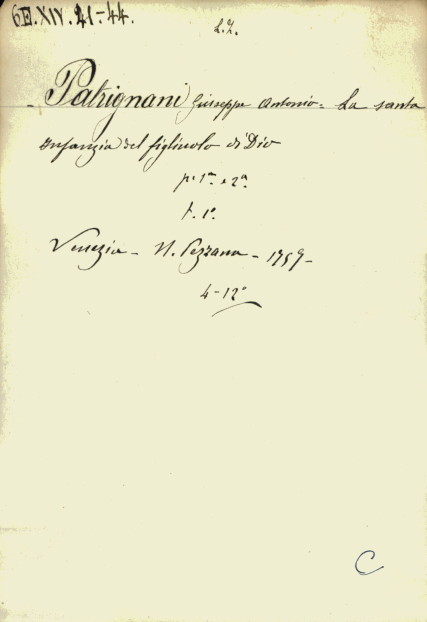 6E.XIV.21-44.
L.Z.
Patrignani Giuseppe Antonio. La santa
Infanzia del figliuolo di Dio
p. 1ª e 2ª
t. 1º
Venezia - N. Pezzana - 1759 -
4 - 12º
C